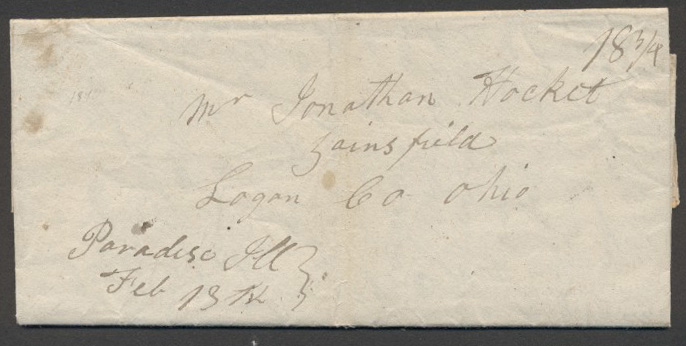 18 3/4
Mr Jonathan Hocket
Zainsfield
Logan Co Ohio
Paradise Ill
Feb 13th